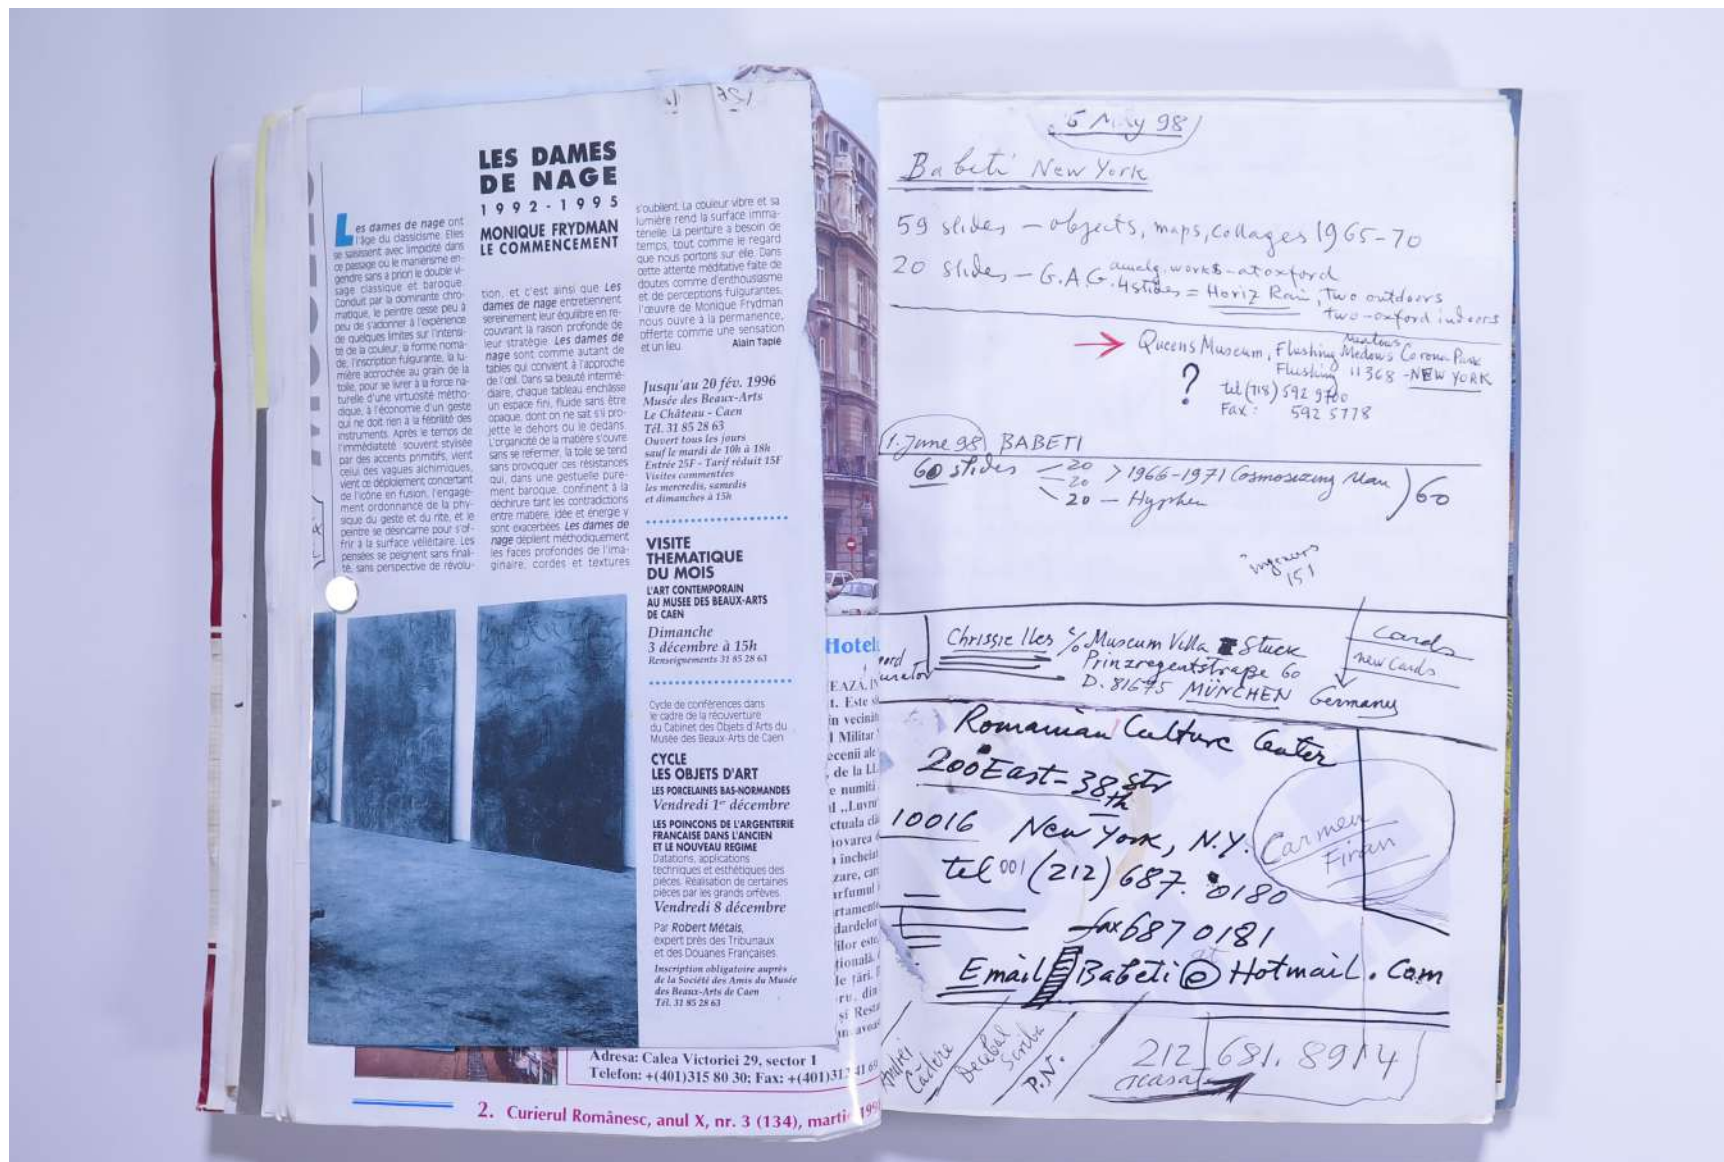 LES DAMES
DE NAGE
1992-1995
MONIQUE FRYDMAN
LE COMMENCEMENT
Les dames de nage ont
l'âge du classicisme. Elles
se saisissent avec limpidité dans
ce passage où le maniérisme en-
gendre sans a priori le double vi-
sage classique et baroque.
Conduit par la dominante chro-
matique, le peintre cesse peu à
peu de s'adonner à l'expérience
de quelques limites sur l'intensi-
té de la couleur, la forme noma-
de, l'inscription fulgurante, la lu-
mière accrochée au grain de la
toile, pour se livrer à la force na-
turelle d'une virtuosité métho-
dique, à l'économie d'un geste
qui ne doit rien à la fébrilité des
instruments. Après le temps de
l'immédiateté souvent stylisée
par des accents primitifs, vient
celui des vagues alchimiques,
vient ce déploiement concertant
de l'icône en fusion, l'engage-
ment ordonnancé de la phy-
sique du geste et du rite, et le
peintre se désincarne pour s'of-
frir à la surface velléitaire. Les
pensées se peignent sans finali-
té, sans perspective de révolu-
tion, et c'est ainsi que Les
dames de nage entretiennent
sereinement leur équilibre en re-
couvrant la raison profonde de
leur stratégie. Les dames de
nage sont comme autant de
tables qui convient à l'approche
de l'œil. Dans sa beauté intermé-
diaire, chaque tableau enchâsse
un espace fini, fluide sans être
opaque, dont on ne sait s'il pro-
jette le dehors ou le dedans.
L'organicité de la matière s'ouvre
sans se refermer, la toile se tend
sans provoquer ces résistances
qui, dans une gestuelle pure-
ment baroque, confinent à la
déchirure tant les contradictions
entre matière, idée et énergie y
sont exacerbées. Les dames de
nage déplient méthodiquement
les faces profondes de l'ima-
ginaire, cordes et textures
s'oublient. La couleur vibre et sa
lumière rend la surface imma-
térielle. La peinture a besoin de
temps, tout comme le regard
que nous portons sur elle. Dans
cette attente méditative faite de
doutes comme d'enthousiasme
et de perceptions fulgurantes,
l'œuvre de Monique Frydman
nous ouvre à la permanence,
offerte comme une sensation
et un lieu. Alain Tapié
Jusqu'au 20 fév. 1996
Musée des Beaux-Arts
Le Château - Caen
Tél. 31 85 28 63
Ouvert tous les jours
sauf le mardi de 10h à 18h
Entrée 25F - Tarif réduit 15F
Visites commentées
les mercredis, samedis
et dimanches à 15h
VISITE
THEMATIQUE
DU MOIS
L'ART CONTEMPORAIN
AU MUSEE DES BEAUX-ARTS
DE CAEN
Dimanche
3 décembre à 15h
Renseignements 31 85 28 63
Cycle de conférences dans
le cadre de la réouverture
du Cabinet des Objets d'Arts du
Musée des Beaux-Arts de Caen
CYCLE
LES OBJETS D'ART
LES PORCELAINES BAS-NORMANDES
Vendredi 1er décembre
LES POINCONS DE L'ARGENTERIE
FRANCAISE DANS L'ANCIEN
ET LE NOUVEAU REGIME
Datations, applications
techniques et esthétiques des
pièces. Réalisation de certaines
pièces par les grands orfèvres.
Vendredi 8 décembre
Par Robert Métais,
expert près des Tribunaux
et des Douanes Françaises.
Inscription obligatoire auprès
de la Société des Amis du Musée
des Beaux-Arts de Caen
Tél. 31 85 28 63
Hotel
EAZĂ
t. Este
in vecină
l Militar
ecenii ale
, de la
e numiti
l „Luvru
ctuala
Adresa: Calea Victoriei 29, sector 1
Telefon: +(401)315 80 30; Fax: +(401)312 41 69
2. Curierul Românesc, anul X, nr. 3 (134), martie 199
5 May 98
Babeti New York
59 slides - objects, maps, collages 1965-70
20 slides - G.A.G. amalg. works - at oxford
4 slides = Horiz Rain, two outdoors
two-oxford indoors
Queens Museum, Flushing Medows Corona Park
Meadows
Flushing 11368 - NEW YORK
? tel (718) 592 9700
Fax: 592 5778
1. June 98 BABETI
60 slides - 20
20 > 1966-1971 Cosmosizing Man ) 60
20 - Hyphen
ingeneurs
151
Chrissie Iles c/o Museum Villa Stuck
Prinzregentstraße 60
D. 81675 MÜNCHEN Germany
Cards
new Cards
Romanian Culture Center
200 East - 38th Str
10016 New York, N.Y.
Carmen
Firan
tel 001 (212) 687. 0180
fax 687 0181
Email Babeti @ Hotmail . Com
at
Andrei
Cădere
Decebal
Scriba
P.N.
212 681. 8914
acasa